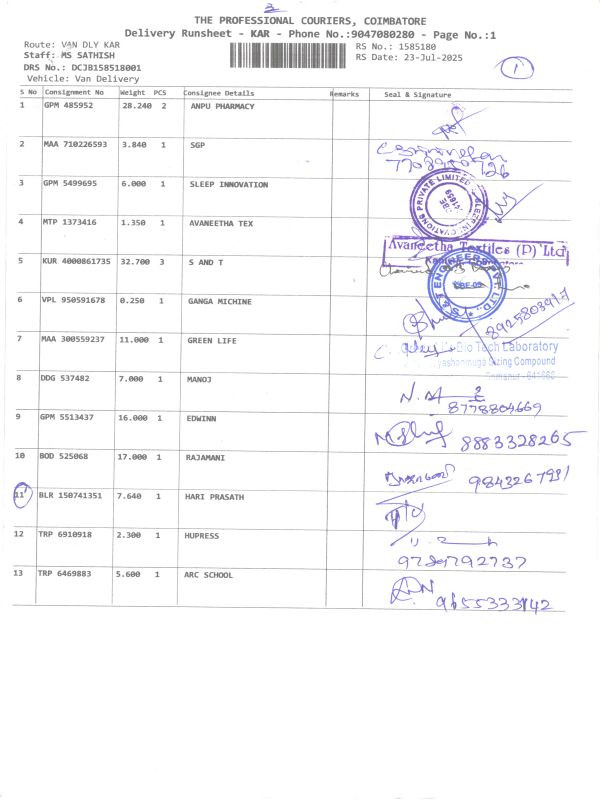 3
THE PROFESSIONAL COURIERS, COIMBATORE
Delivery Runsheet - KAR - Phone No.:9047080280 - Page No.:1
Route: VAN DLY KAR RS No.: 1585180
Staff: MS SATHISH RS Date: 23-Jul-2025
DRS No.: DCJB158518001 1
Vehicle: Van Delivery
S No Consignment No Weight PCS Consignee Details Remarks Seal & Signature
1 GPM 485952 28.240 2 ANPU PHARMACY
2 MAA 710226593 3.840 1 SGP
3 GPM 5499695 6.000 1 SLEEP INNOVATION
PRIVATE LIMITED
4 MTP 1373416 1.350 1 AVANEETHA TEX
Avaneetha Textiles (P) Ltd
5 KUR 4000861735 32.700 3 S AND T
6 VPL 950591678 0.250 1 GANGA MICHINE
8925803917
7 MAA 300559237 11.000 1 GREEN LIFE
Bio Tech Laboratory
Sizing Compound
8 DDG 537482 7.000 1 MANOJ
8778804669
9 GPM 5513437 16.000 1 EDWINN
8883328265
10 BOD 525068 17.000 1 RAJAMANI
11 BLR 150741351 7.640 1 HARI PRASATH
12 TRP 6910918 2.300 1 HUPRESS
13 TRP 6469883 5.600 1 ARC SCHOOL